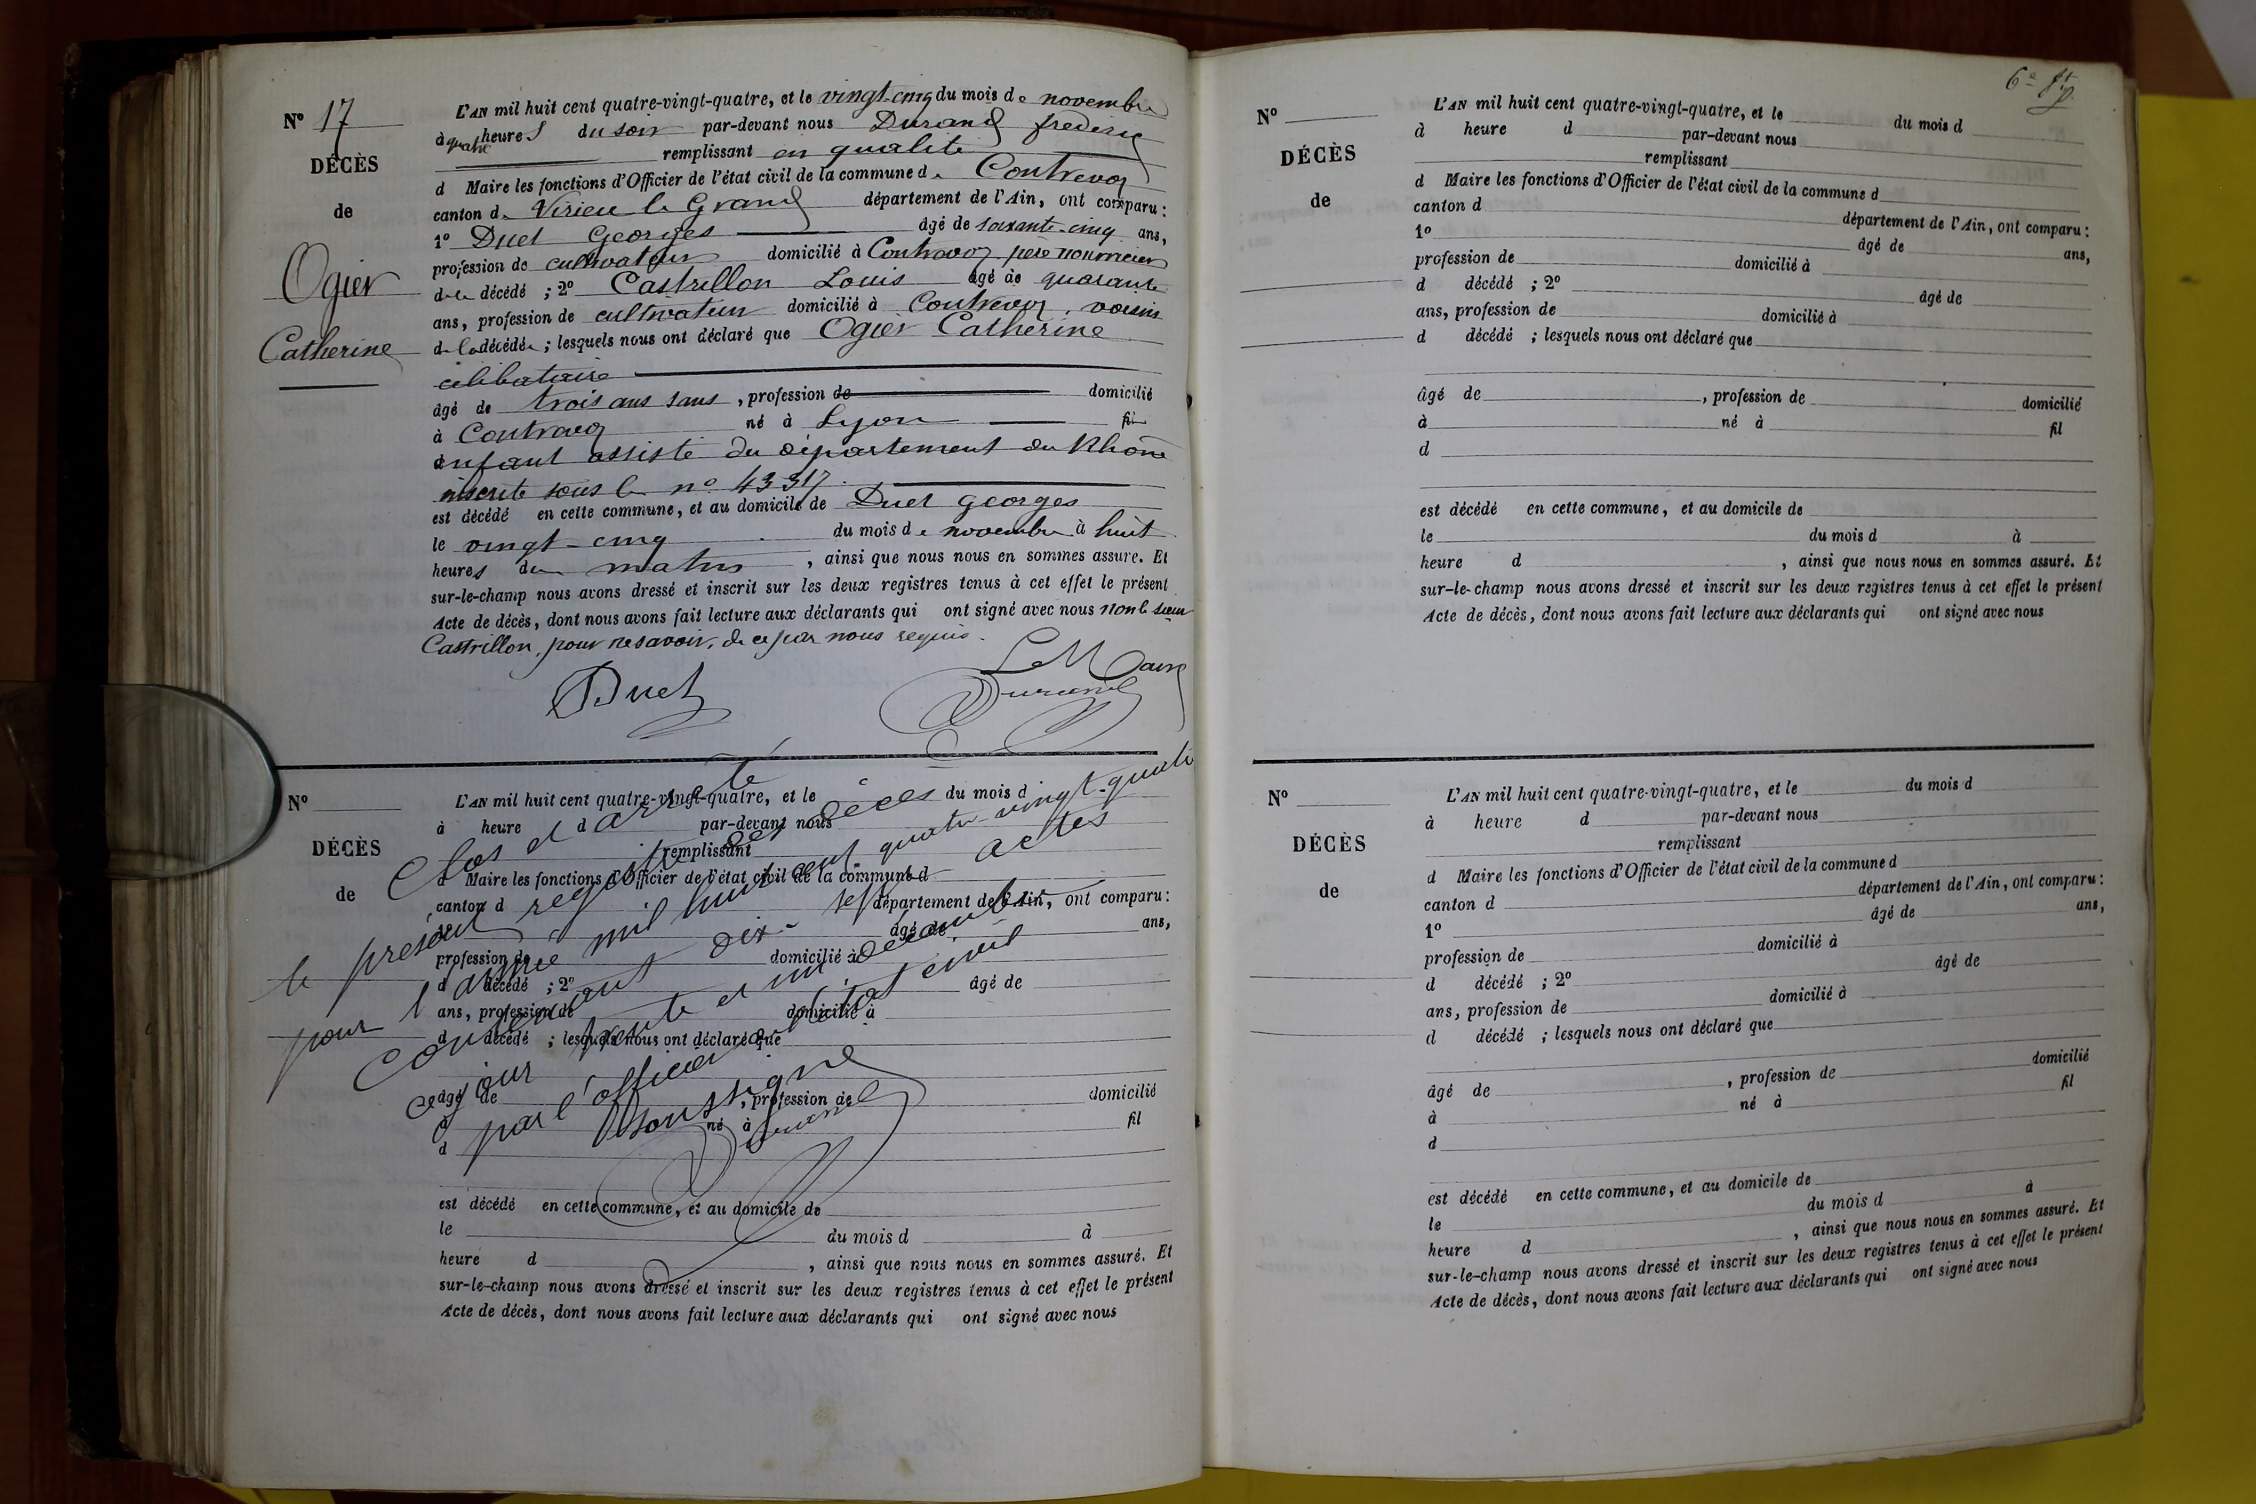 Nº 17
DÉCÈS
de
Ogier
Catherine
L'AN mil huit cent quatre-vingt-quatre, et le vingt-cinq du mois de novembre
à quatre heures du soir par-devant nous Durand frederic
remplissant en qualité
d Maire les fonctions d'Officier de l'état civil de la commune de Contrevoz
canton de Virieu le Grand département de l'Ain, ont comparu :
1º Duet Georges âgé de soixante-cinq ans,
profession de cultivateur domicilié à Contrevoz père nourricier
de la décédé ; 2º Castrillon Louis âgé de quarante
ans, profession de cultivateur domicilié à Contrevoz, voisin
de la décédée ; lesquels nous ont déclaré que Ogier Catherine
célibataire
âgé de trois ans sans , profession de domicilié
à Contrevoz né à Lyon fil
enfant assisté du département du Rhône
inscrite sous le nº 43317
est décédé en cette commune, et au domicile de Duet Georges
le vingt-cinq du mois de novembre à huit
heures du matin , ainsi que nous nous en sommes assuré. Et
sur-le-champ nous avons dressé et inscrit sur les deux registres tenus à cet effet le présent
Acte de décès, dont nous avons fait lecture aux déclarants qui ont signé avec nous non le sieur
Castrillon, pour ne savoir, de ce par nous requis.
Duet
Le Maire
Durand
Nº
DÉCÈS
de
L'AN mil huit cent quatre-vingt-quatre, et le du mois d
à heure d par-devant nous
remplissant
d Maire les fonctions d'Officier de l'état civil de la commune d
canton d département de l'Ain, ont comparu :
1º âgé de ans,
profession de domicilié à
d décédé ; 2º âgé de
ans, profession de domicilié à
d décédé ; lesquels nous ont déclaré que
âgé de , profession de domicilié
à né à fil
d
est décédé en cette commune, et au domicile de
le du mois d à
heure d , ainsi que nous nous en sommes assuré. Et
sur-le-champ nous avons dressé et inscrit sur les deux registres tenus à cet effet le présent
Acte de décès, dont nous avons fait lecture aux déclarants qui ont signé avec nous
Clos et arrêté
le présent registre des décès
pour l'année mil huit cent quatre-vingt-quatre
contenant dix-sept actes
ce jour trente et un décembre
par l'officier de l'état civil
soussigné
Durand
6e ft
Nº
DÉCÈS
de
L'AN mil huit cent quatre-vingt-quatre, et le du mois d
à heure d par-devant nous
remplissant
d Maire les fonctions d'Officier de l'état civil de la commune d
canton d département de l'Ain, ont comparu :
1º âgé de ans,
profession de domicilié à
d décédé ; 2º âgé de
ans, profession de domicilié à
d décédé ; lesquels nous ont déclaré que
âgé de , profession de domicilié
à né à fil
d
est décédé en cette commune, et au domicile de
le du mois d à
heure d , ainsi que nous nous en sommes assuré. Et
sur-le-champ nous avons dressé et inscrit sur les deux registres tenus à cet effet le présent
Acte de décès, dont nous avons fait lecture aux déclarants qui ont signé avec nous
Nº
DÉCÈS
de
L'AN mil huit cent quatre-vingt-quatre, et le du mois d
à heure d par-devant nous
remplissant
d Maire les fonctions d'Officier de l'état civil de la commune d
canton d département de l'Ain, ont comparu :
1º âgé de ans,
profession de domicilié à
d décédé ; 2º âgé de
ans, profession de domicilié à
d décédé ; lesquels nous ont déclaré que
âgé de , profession de domicilié
à né à fil
d
est décédé en cette commune, et au domicile de
le du mois d à
heure d , ainsi que nous nous en sommes assuré. Et
sur-le-champ nous avons dressé et inscrit sur les deux registres tenus à cet effet le présent
Acte de décès, dont nous avons fait lecture aux déclarants qui ont signé avec nous